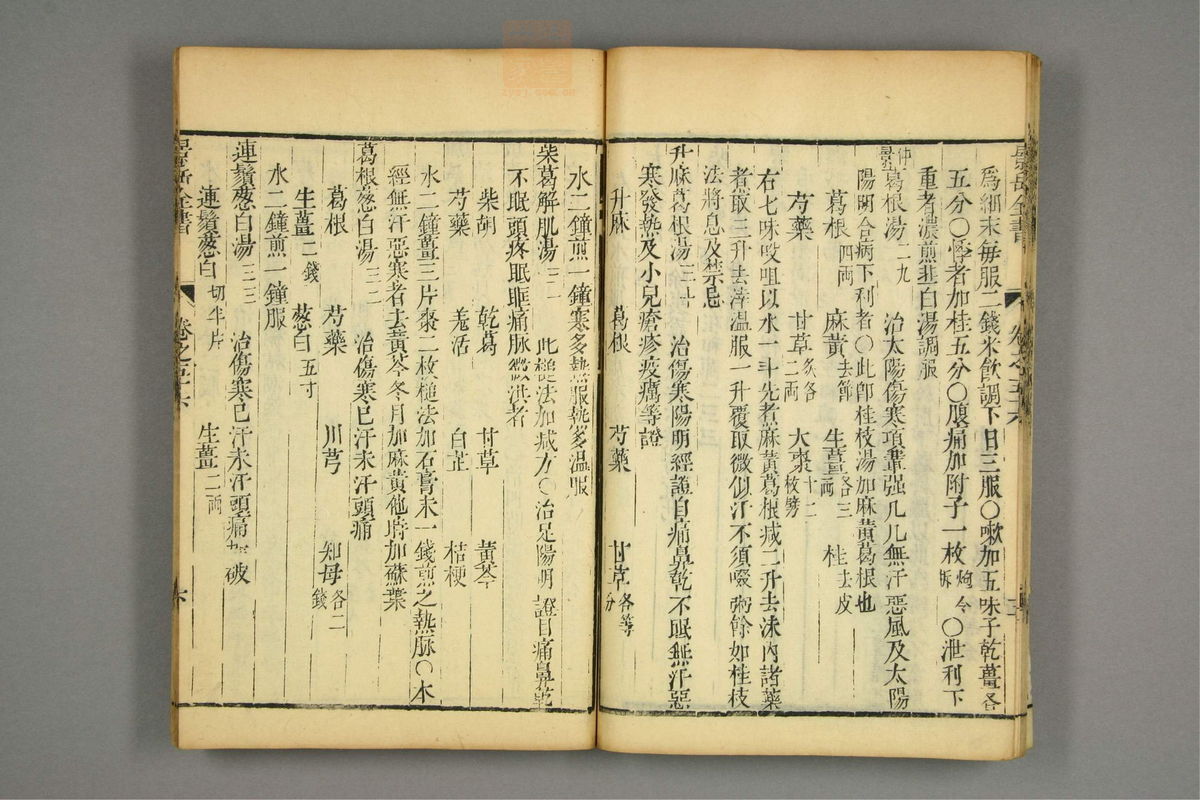 景岳全書 卷之五十六
為細末每服二錢米飲調下日三服○嗽加五味子乾薑各
五分○悸者加桂五分○腹痛加附子一枚炮令拆○泄利下
重者濃煎薤白湯調服
仲景葛根湯二九 治太陽傷寒項背强几几無汗惡風及太陽
陽明合病下利者○此即桂枝湯加麻黃葛根也
葛根四兩 麻黃去節 生薑各三兩 桂去皮
芍藥 甘草炙各二兩 大棗十二枚劈
右七味㕮咀以水一斗先煮麻黃葛根减二升去沫內諸藥
煮取三升去滓温服一升覆取微似汗不須啜粥餘如桂枝
法將息及禁忌
升麻葛根湯三十 治傷寒陽明經證目痛鼻乾不眠無汗惡
寒發熱及小兒瘡疹疫癘等證
升麻 葛根 芍藥 甘草各等分
水二鐘煎一鐘寒多熱服熱多温服
柴葛解肌湯三一 此槌法加减方○治足陽明證目痛鼻乾
不眠頭疼眼眶痛脉微洪者
柴胡 乾葛 甘草 黃芩
芍藥 羗活 白芷 桔梗
水二鐘薑三片棗二枚槌法加石膏末一錢煎之熱服○本
經無汗惡寒者去黃芩冬月加麻黃他時加蘇葉
葛根葱白湯三二 治傷寒已汗未汗頭痛
葛根 芍藥 川芎 知母各二錢
生薑二錢 葱白五寸
水二鐘煎一鐘服
連鬚葱白湯三三 治傷寒已汗未汗頭痛如破
連鬚葱白切半斤 生薑二兩
景岳全書 卷之五十六 六